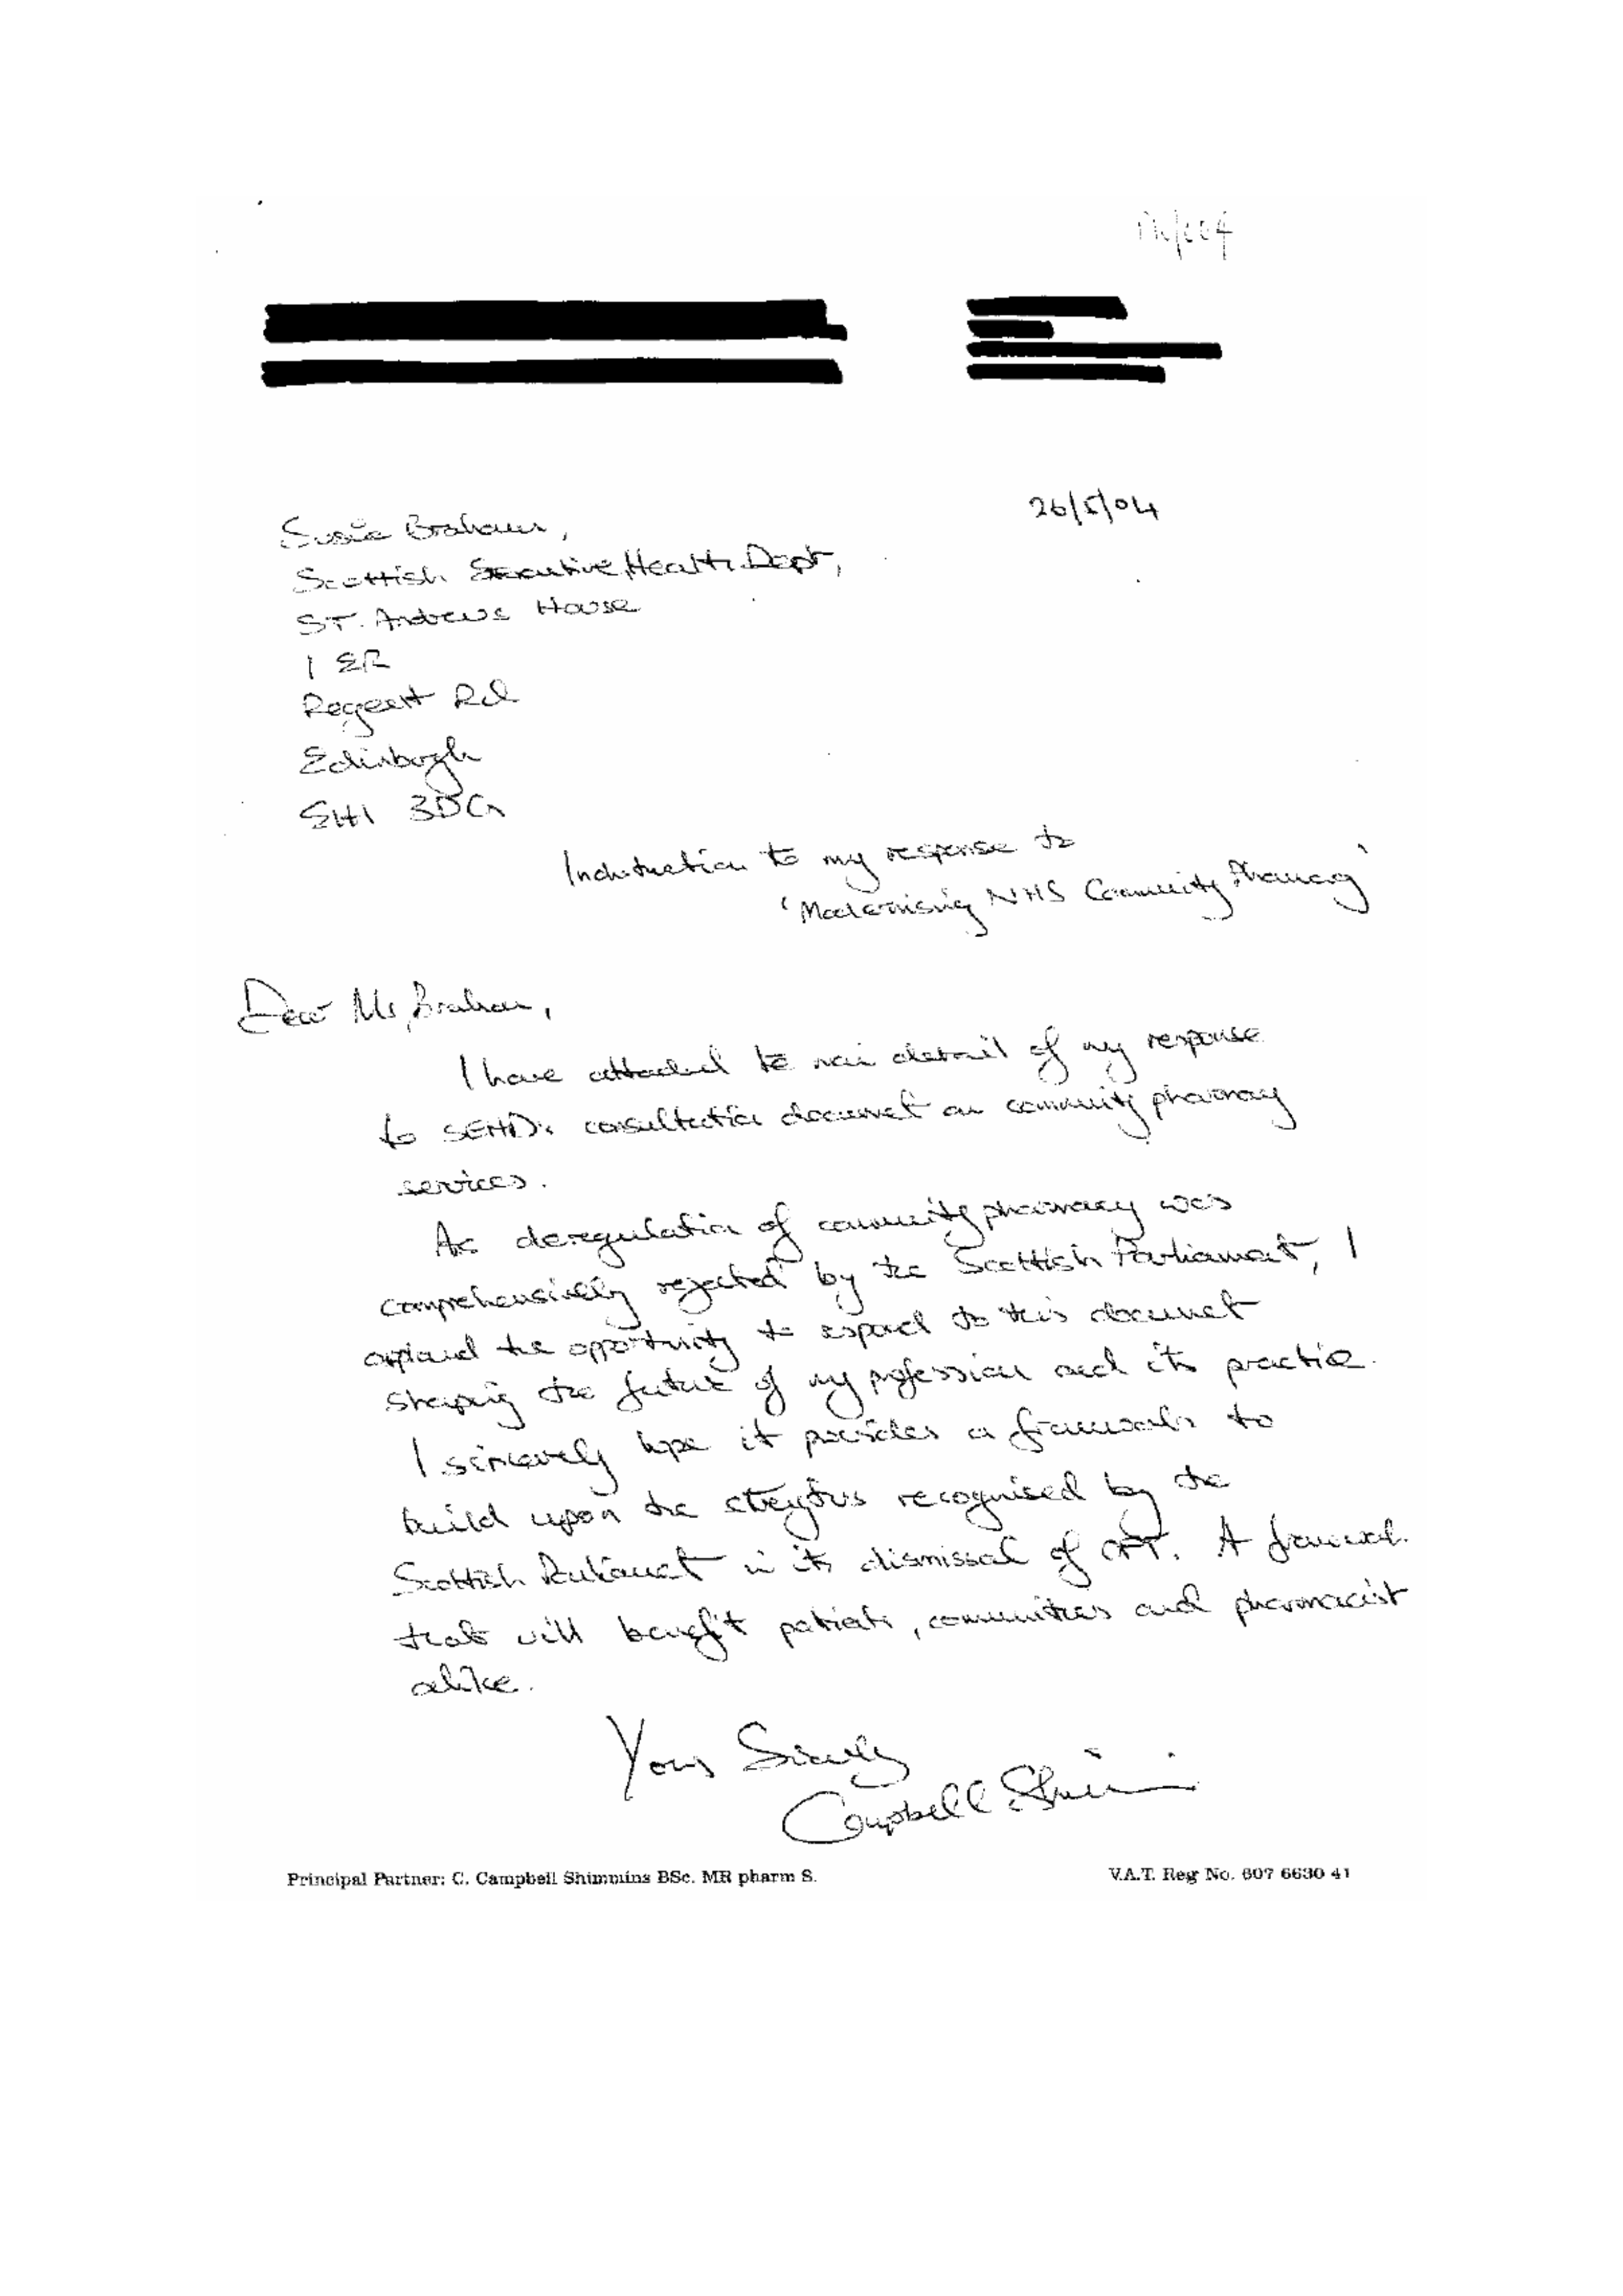 26/5/04
Susie Braham,
Scottish Executive Health Dept,
ST. Andrews House
1 ER
Regent Rd
Edinburgh
EH1 3DG
to my response to
'Modernising NHS Community Pharmacy'
Dear Ms Braham,
I have attached the main detail of my response
to SEHD's consultation document on community pharmacy
services.
As deregulation of community pharmacy was
comprehensively rejected by the Scottish Parliament, I
applaud the opportunity to respond to this document
shaping the future of my profession and its practice.
I sincerely hope it provides a framework to
build upon the strengths recognised by the
Scottish Parliament in its dismissal of OFT. A framework
that will benefit patients, communities and pharmacist
alike.
Yours Sincerely
Campbell Shimmins
Principal Partner: C. Campbell Shimmins BSc. MR pharm S.
V.A.T. Reg No. 607 6630 41